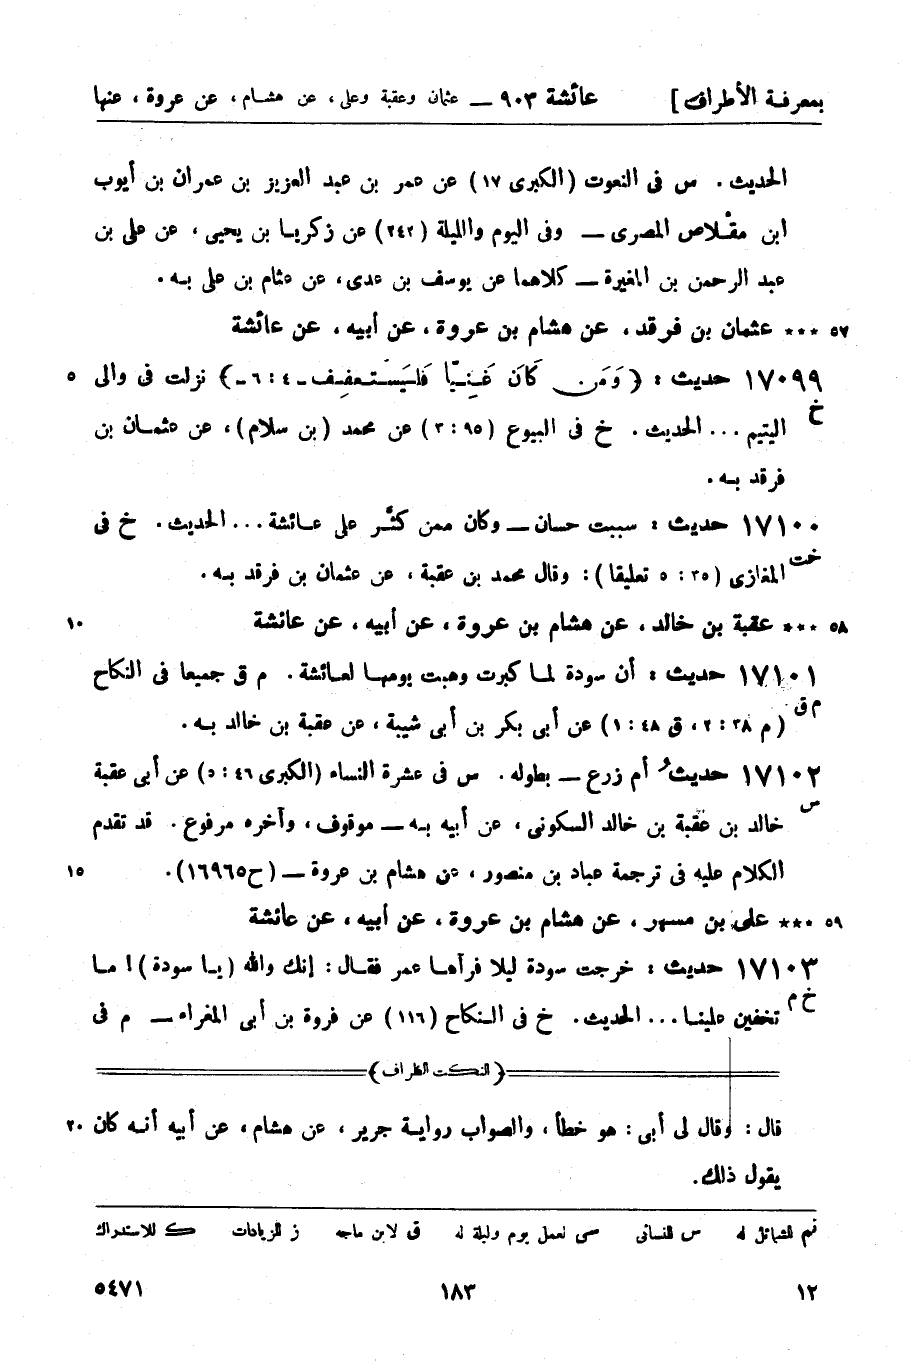 بمعرفة الأطراف] عائشة ٩٠٣ — عثمان وعقبة وعلى، عن هشام، عن عروة، عنها
الحديث. س فى النعوت (الكبرى ١٧) عن عمر بن عبد العزيز بن عمران بن أيوب
ابن مقْلاص المصرى — وفى اليوم والليلة (٢٤٢) عن زكريا بن يحيى، عن على بن
عبد الرحمن بن المغيرة — كلاهما عن يوسف بن عدى، عن عثام بن على به.
٥٧ *** عثمان بن فرقد، عن هشام بن عروة، عن أبيه، عن عائشة
١٧٠٩٩ حديث: ﴿وَمَن كَانَ غَنِيًّا فَلْيَسْتَعْفِفْ ـ ٤ : ٦ ـ﴾ نزلت فى والى ٥
خ اليتيم ... الحديث. خ فى البيوع (٩٥ : ٣) عن محمد (بن سلام)، عن عثمان بن
فرقد به.
١٧١٠٠ حديث: سببت حسان — وكان ممن كثَّر على عائشة ... الحديث. خ فى
خت المغازى (٣٥ : ٥ تعليقا): وقال محمد بن عقبة، عن عثمان بن فرقد به.
٥٨ *** عقبة بن خالد، عن هشام بن عروة، عن أبيه، عن عائشة ١٠
١٧١٠١ حديث: أن سودة لما كبرت وهبت يومها لعائشة. م ق جميعا فى النكاح
م ق (م ٣٨ : ٢، ق ٤٨ : ١) عن أبى بكر بن أبى شيبة، عن عقبة بن خالد به.
١٧١٠٢ حديث أم زرع — بطوله. س فى عشرة النساء (الكبرى ٤٦ : ٥) عن أبى عقبة
س خالد بن عُقبة بن خالد السكونى، عن أبيه به — موقوف، وآخره مرفوع. قد تقدم
الكلام عليه فى ترجمة عباد بن منصور، عن هشام بن عروة — (ح ١٦٩٦٥). ١٥
٥٩ *** على بن مسهر، عن هشام بن عروة، عن أبيه، عن عائشة
١٧١٠٣ حديث: خرجت سودة ليلا فرآها عمر فقال: إنك والله (يا سودة)! ما
خ م تخفين علينا ... الحديث. خ فى النكاح (١١٦) عن فروة بن أبى المغراء — م فى
﴿النكت الظراف﴾
قال: وقال لى أبى: هو خطأ، والصواب رواية جرير، عن هشام، عن أبيه أنه كان ٢٠
يقول ذلك.
تم للشمائل له س للنسائى سى لعمل يوم وليلة له ق لابن ماجه ز للزيادات ك للاستدراك
١٢ ١٨٣ ٥٤٧١